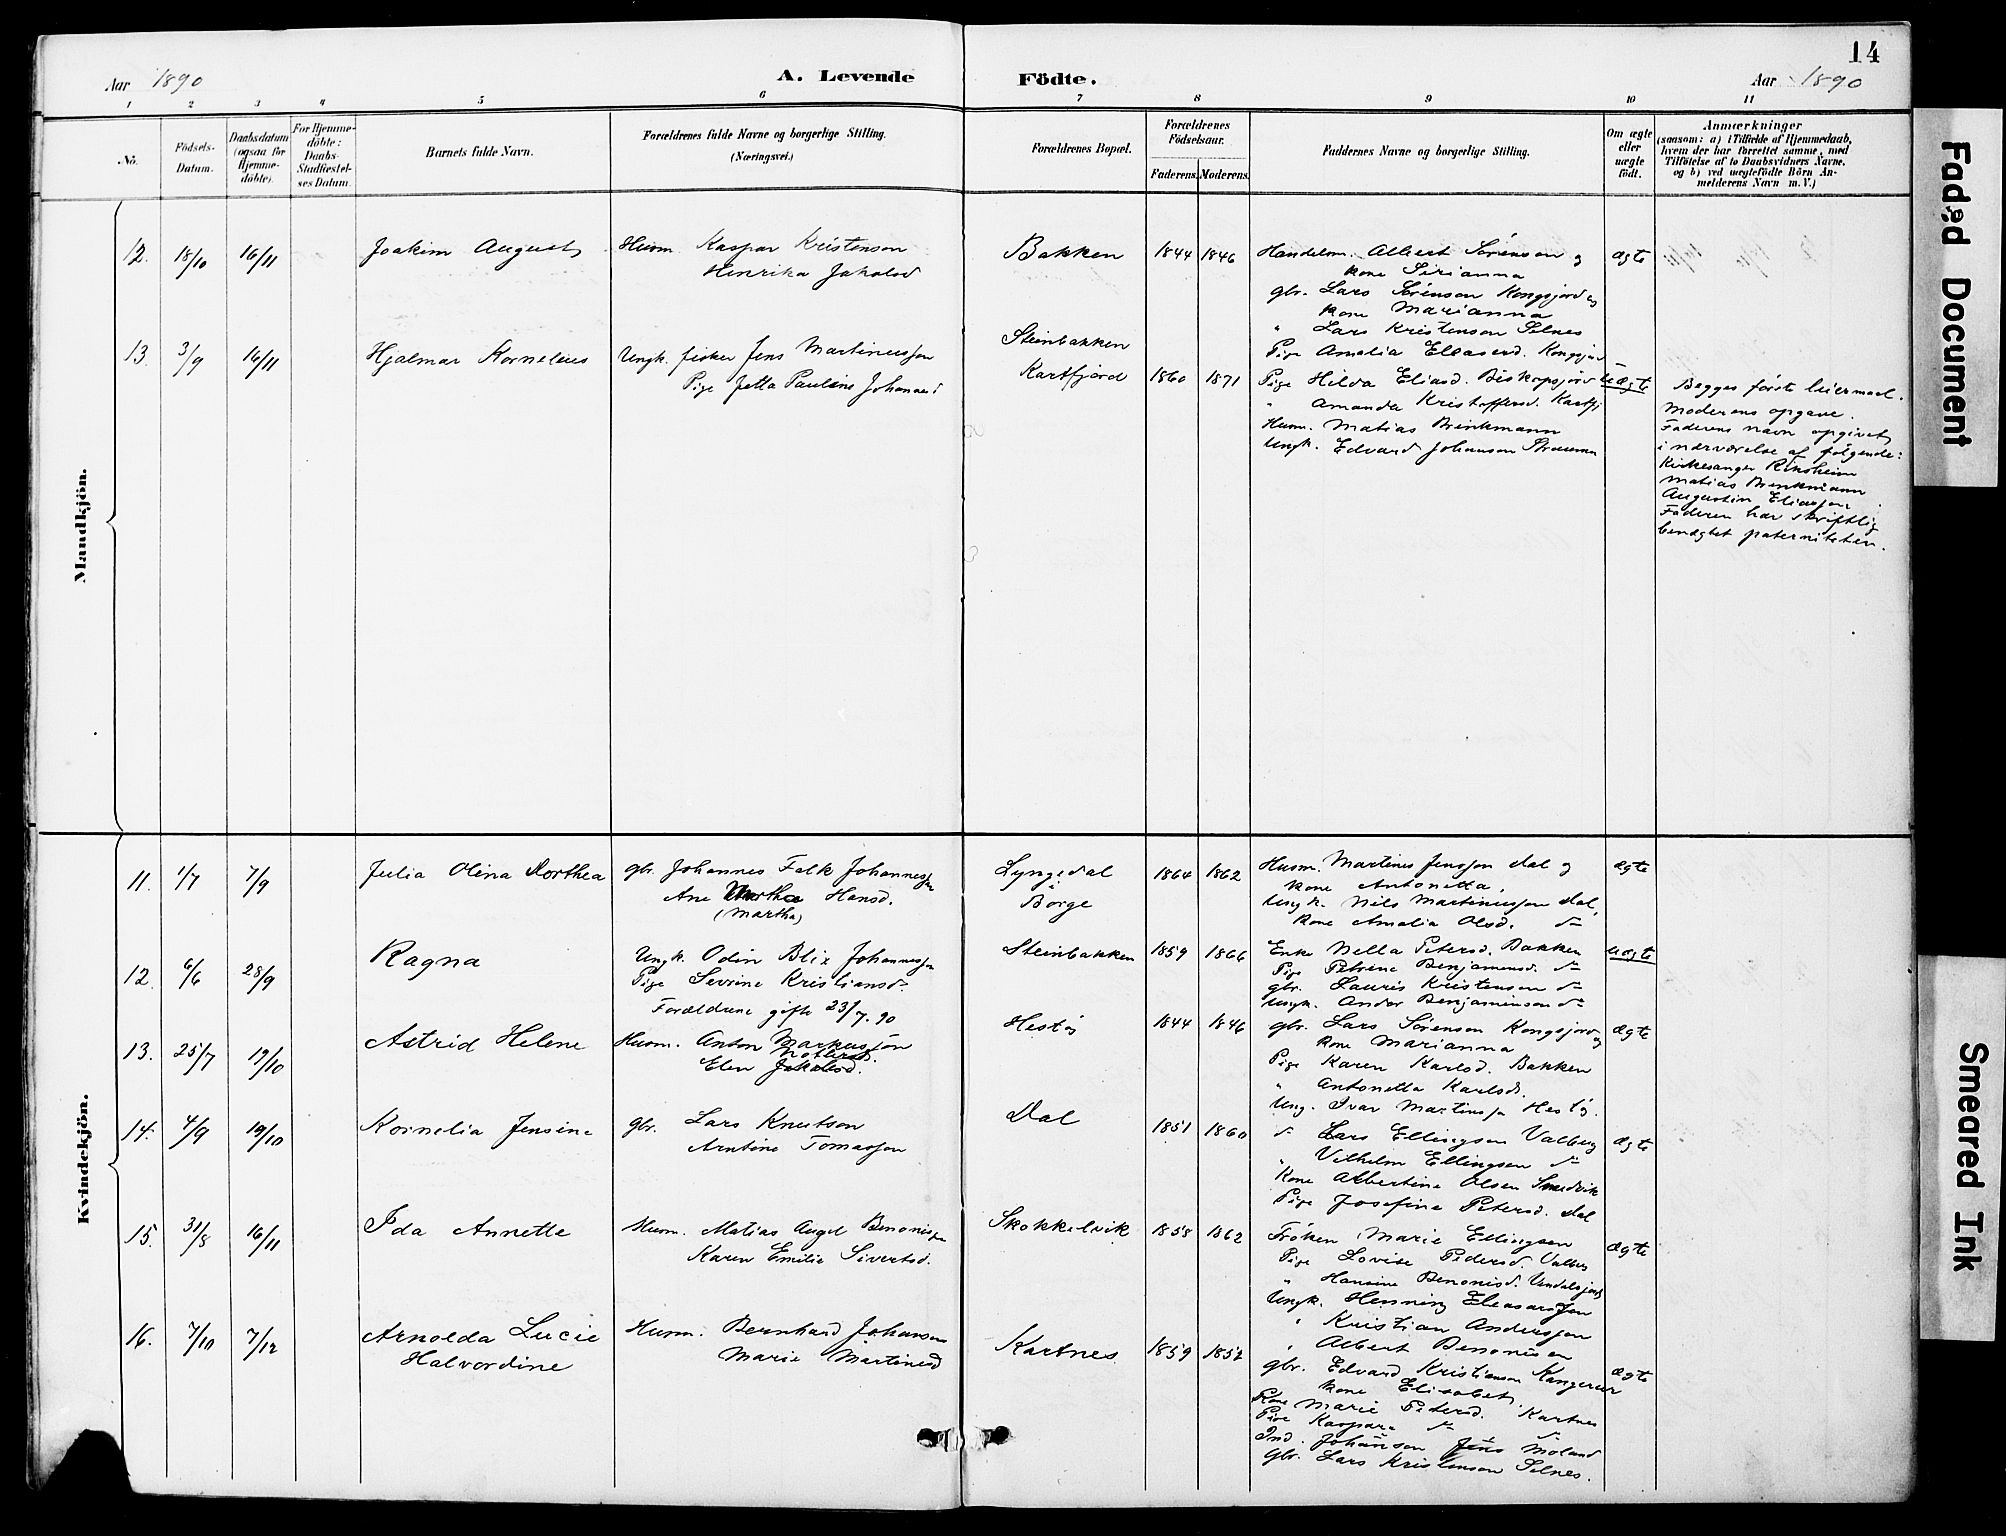 14
Aar 1890
A. Levende Födte.
Aar 1890
1 2 3 4 5 6 7 8 9 10 11
No.
Födsels-Datum.
Daabsdatum (ogsaa for Hjemme-döbte).
For Hjemme-döbte: Daabs-Stadfæstel-ses Datum.
Barnets fulde Navn.
Forældrenes fulde Navne og borgerlige Stilling.
(Næringsvei.)
Forældrenes Bopæl.
Forældrenes Födselsaar.
Faderens. Moderens.
Faddernes Navne og borgerlige Stilling.
Om ægte eller uægte födt.
Anmærkninger
(saasom: a) i Tilfælde af Hjemmedaab,
hvem der har forrettet samme, med
Tilföielse af to Daabsvidners Navne,
og b) ved uægtefödte Börn An-
melderens Navn m. V.)
Mandkjön.
12. 18/10 16/11 Joakim August Husm. Kaspar Kristenson
Henrika Jakobsd
Bakken 1844 1846
Handelsm. Albert Sörenson og
kone Sirianna
gbr. Lars Sörenson Kongsjord og
kone Marianna
" Lars Kristenson Selnes
Pige Amalia Eleasersd. Kongsjord
ægte
13. 3/9 16/11 Hjalmar Kornelius Ungk. fisker Jens Martinussen
Pige Jetta Pauline Johannesd
Steinbakken
Kartfjord 1860 1871
Pige Hilda Eliasd. Biskopsjord
" Amanda Kristoffersd. Kartfj
Husm. Matias Brinkmann
Ungk. Edvard Johanson
uægte
Begges förste leiermaal.
Moderens opgave.
Faderens navn opgivet
i nærværelse af fölgende:
Kirkesanger Riksheim
Matias Brinkmann
Augustin Eliassen
Faderen har skriftlig
benægtet paterniteten.
Kvindekjön.
11. 1/7 7/9 Julia Olina Dorthea gbr. Johannes Falk Johannessen
Ane Hansd.
(Martha)
Lyngedal
i
Borge
1864 1862
Husm. Martines Jenssen Dal og
kone Antonetta,
Ungk. Nils Martinussen Dal,
kone Amalia Olsd. do
ægte
12. 6/6 28/9 Ragna Ungk. Odin Blix Johannessen
Pige Sevrine Kristiansd.
Forældrene gifte 23/7. 90
Steinbakken 1859 1866
Enke Nella Petersd. Bakken
Pige Petrine Benjaminsd. do
gbr. Lauris Kristenson do
Ungk. Andor Benjaminson do
uægte
13. 25/7 19/10 Astrid Helene Husm. Anton Markusson
Elen Jakobsd.
Hestö 1844 1846
gbr. Lars Sörenson Kongsjord og
kone Marianna
Pige Karen Karlsd. Bakken
" Antonetta Karlsd.
Ung. Ivar Martinsen Hestö.
ægte
14. 4/9 19/10 Kornelia Jensine gbr. Lars Knutson
Arntine Tomassen
Dal 1851 1860
do Lars Ellingsen Valberg
" Vilhelm Ellingsen do
Kone Albertine Olsen Smedvik
Pige Josefine Petersd. Dal
ægte
15. 31/8 16/11 Ida Annette Husm. Matias Angel Benonisen
Karen Emilie Sivertsd.
Skokkelvik 1858 1862
Fröken Marie Ellingsen
Pige Lovise Pedersd. Valberg
" Hansine Benonisd.
Ungk. Henning Eleasarssen
" Kristian Anderssen
" Albert Benonisen
ægte
16. 7/10 7/12 Arnolda Lucie
Halvordine
Husm. Bernhard Johansen
Marie Martinesd
Kartnes 1859 1852
gbr. Edvard Kristianson Kangerur
kone Elisabet,
Kone Marie Petersd. Kartnes
Pige Kaspara do
Ind. Johanson Jens Moland
gbr. Lars Kristenson Selnes.
ægte
Faded Document
Smeared Ink